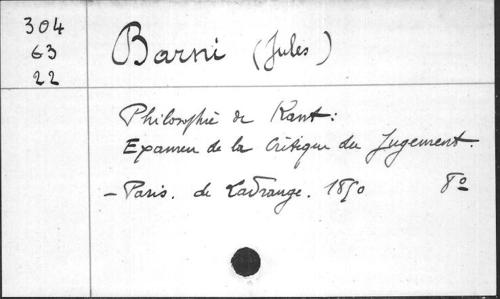 304
63
22
Barni (Jules)
Philosophie de Kant:
Examen de la Critique du Jugement.
— Paris. de Ladrange. 1850 8º